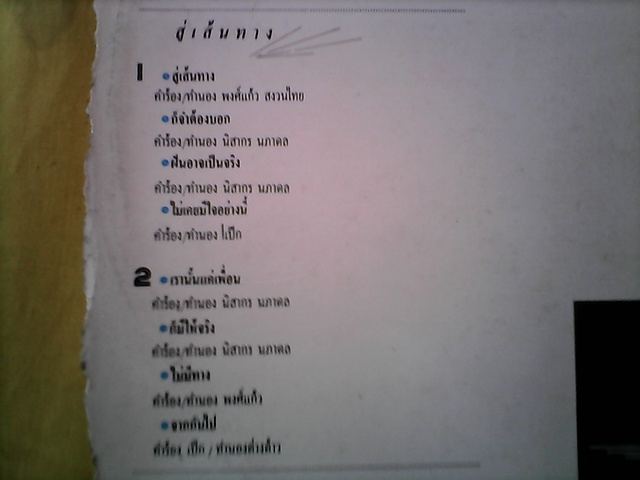 สู่เส้นทาง
1 สู่เส้นทาง
คำร้อง/ทำนอง พงศ์แก้ว สงวนไทย
ก็จำต้องบอก
คำร้อง/ทำนอง นิสากร นภาดล
ฝันอาจเป็นจริง
คำร้อง/ทำนอง นิสากร นภาดล
ไม่เคยมีใจอย่างนี้
คำร้อง/ทำนอง เป็ก
2 เรานั้นแค่เพื่อน
คำร้อง/ทำนอง นิสากร นภาดล
ก็มีให้จริง
คำร้อง/ทำนอง นิสากร นภาดล
ไม่มีทาง
คำร้อง/ทำนอง พงศ์แก้ว
จากกันไป
คำร้อง เป็ก / ทำนองต่างด้าว